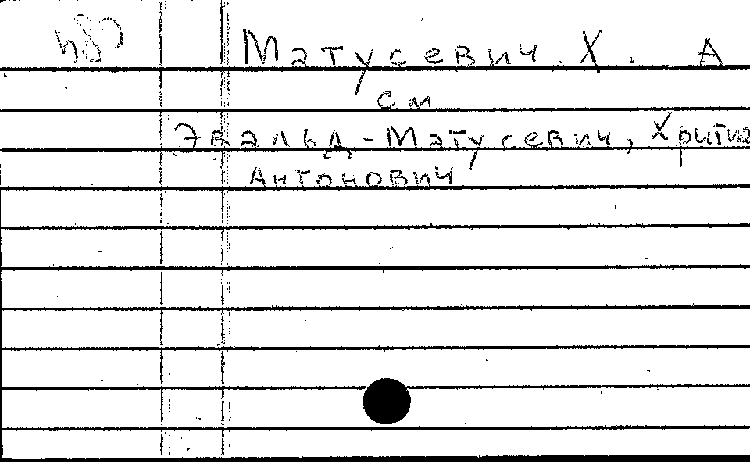 Матусевич. Х. А
см
Эвальд-Матусевич, Хритиа
Антонович